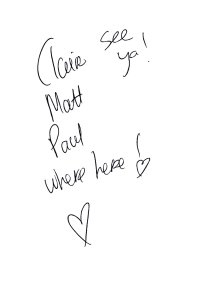 Claire see ya!
Matt
Paul
where here!